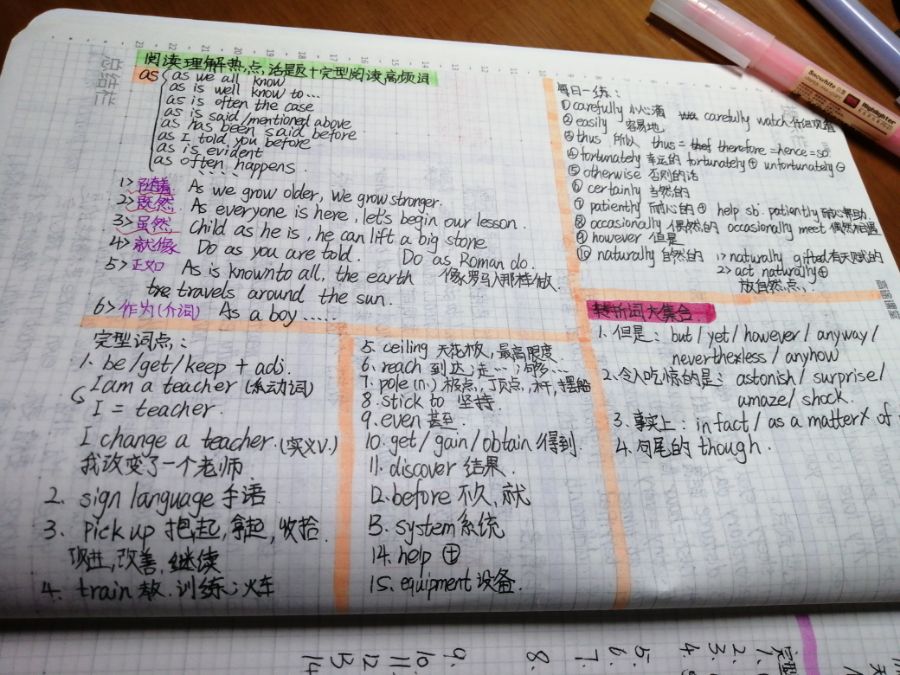 阅读理解热点,活是区+完型阅读高频词
as
as we all know
as is well know to...
as is often the case
as is said/mentioned above
as has been said before
as I told you before
as is evident
as often happens
1> 随着 As we grow older, we grow stronger.
2> 既然 As everyone is here, let's begin our lesson.
3> 虽然 Child as he is, he can lift a big stone
4> 就像 Do as you are told. Do as Roman do.
像罗马人那样做.
5> 正如 As is known to all, the earth
travels around the sun.
6> 作为(介词) As a boy.....
每日一练:
① carefully 小心滴 carefully watch 仔细观看
② easily 容易地
③ thus 所以 thus = therefore = hence = so
④ fortunately 幸运的 fortunately ⊕ unfortunately ⊖
⑤ otherwise 否则的话
⑥ certainly 当然的
⑦ patiently 耐心的 ⊕ help sb. patiently 耐心帮助.
⑧ occasionally 偶然的 occasionally meet 偶然相遇
⑨ however 但是
⑩ naturally 自然的 1> naturally gifted 有天赋的
2> act naturally ⊕
放自然点,
完型词点:
1. be/get/keep + adj.
I am a teacher (系动词)
I = teacher.
I change a teacher. (实义v.)
我改变了一个老师
2. sign language 手语
3. pick up 抱起, 拿起, 收拾.
改善, 继续
4. train 教. 训练; 火车
5. ceiling 天花板, 最高限度.
6. reach 到达; 走…; 够…
7. pole (n.) 极点, 顶点, 杆, 撑船
8. stick to 坚持.
9. even 甚至.
10. get/gain/obtain 得到
11. discover 结果.
12. before 不久, 就
13. system 系统
14. help ⊕
15. equipment 设备.
转折词大集合
1. 但是: but / yet / however / anyway /
nevertheless / anyhow
2. 令人吃惊的是: astonish / surprise /
amaze / shock.
3. 事实上: in fact / as a matter of
4. 句尾的 though.
总结栏
Snowhite
Highlighter
9.
8.
7.
6.
5.
4.
3.
2.
1.
10.
11
12
13
14
完型